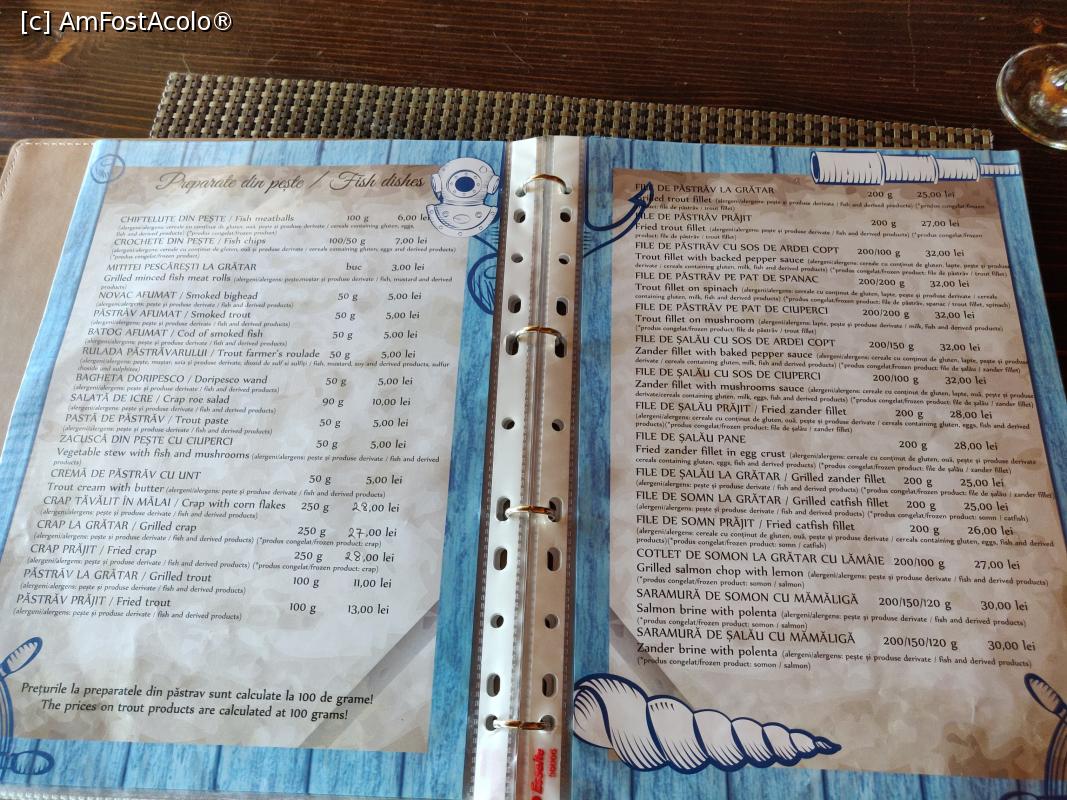 [c] AmFostAcolo®
Preparate din pește / Fish dishes
CHIFTELUȚE DIN PEȘTE / Fish meatballs 100 g 6,00 lei
(alergeni/alergens: cereale cu conținut de gluten, ouă, pește și produse derivate / cereals containing gluten, eggs,
fish and derived products) (*produs congelat/frozen product)
CROCHETE DIN PEȘTE / Fish chips 100/50 g 7,00 lei
(alergeni/alergens: cereale cu conținut de gluten, ouă și produse derivate / cereals containing gluten, eggs and derived products)
(*produs congelat/frozen product)
MITITEI PESCĂREȘTI LA GRĂTAR buc 3,00 lei
Grilled minced fish meat rolls (alergeni/alergens: pește,muștar și produse derivate / fish, mustard and derived
products)
NOVAC AFUMAT / Smoked bighead 50 g 5,00 lei
(alergeni/alergens: pește și produse derivate / fish and derived products)
PĂSTRĂV AFUMAT / Smoked trout 50 g 5,00 lei
(alergeni/alergens: pește și produse derivate / fish and derived products)
BATOG AFUMAT / Cod of smoked fish 50 g 5,00 lei
(alergeni/alergens: pește și produse derivate / fish and derived products)
RULADA PĂSTRĂVARULUI / Trout farmer's roulade 50 g 5,00 lei
(alergeni/alergens: pește, muștar, soia și produse derivate, dioxid de sulf și sulfiți / fish, mustard, soy and derived products, sulfur
dioxide and sulphites)
BAGHETA DORIPESCO / Doripesco wand 50 g 5,00 lei
(alergeni/alergens: pește și produse derivate / fish and derived products)
SALATĂ DE ICRE / Crap roe salad 90 g 10,00 lei
(alergeni/alergens: pește și produse derivate / fish and derived products)
PASTĂ DE PĂSTRĂV / Trout paste 50 g 5,00 lei
(alergeni/alergens: pește și produse derivate / fish and derived products)
ZACUSCĂ DIN PEȘTE CU CIUPERCI 50 g 5,00 lei
Vegetable stew with fish and mushrooms (alergeni/alergens: pește și produse derivate / fish and derived
products)
CREMĂ DE PĂSTRĂV CU UNT 50 g 5,00 lei
Trout cream with butter (alergeni/alergens: pește și produse derivate / fish and derived products)
CRAP TĂVĂLIT ÎN MĂLAI / Crap with corn flakes 250 g 28,00 lei
(alergeni/alergens: pește și produse derivate / fish and derived products)
CRAP LA GRĂTAR / Grilled crap 250 g 27,00 lei
(alergeni/alergens: pește și produse derivate / fish and derived products) (*produs congelat/frozen product: crap)
CRAP PRĂJIT / Fried crap 250 g 28,00 lei
(alergeni/alergens: pește și produse derivate / fish and derived products) (*produs congelat/frozen product: crap)
PĂSTRĂV LA GRĂTAR / Grilled trout 100 g 11,00 lei
(alergeni/alergens: pește și produse derivate / fish and derived products)
PĂSTRĂV PRĂJIT / Fried trout 100 g 13,00 lei
(alergeni/alergens: pește și produse derivate / fish and derived products)
Prețurile la preparatele din păstrav sunt calculate la 100 de grame!
The prices on trout products are calculated at 100 grams!
FILE DE PĂSTRĂV LA GRĂTAR 200 g 25,00 lei
trout fillet (alergeni/alergens: pește și produse derivate / fish and derived products) (*produs congelat/frozen
product: file de păstrăv / trout fillet)
FILE DE PĂSTRĂV PRĂJIT 200 g 27,00 lei
Fried trout fillet (alergeni/alergens: pește și produse derivate / fish and derived products) (*produs congelat/frozen
product: file de păstrăv / trout fillet)
FILE DE PĂSTRĂV CU SOS DE ARDEI COPT 200/100 g 32,00 lei
Trout fillet with backed pepper sauce (alergeni/alergens: cereale cu conținut de gluten, lapte, pește și produse
derivate / cereals containing gluten, milk, fish and derived products) (*produs congelat/frozen product: file de păstrăv / trout fillet)
FILE DE PĂSTRĂV PE PAT DE SPANAC 200/200 g 32,00 lei
Trout fillet on spinach (alergeni/alergens: cereale cu conținut de gluten, lapte, pește și produse derivate / cereals
containing gluten, milk, fish and derived products) (*produs congelat/frozen product: file de păstrăv, spanac / trout fillet, spinach)
FILE DE PĂSTRĂV PE PAT DE CIUPERCI 200/200 g 32,00 lei
Trout fillet on mushroom (alergeni/alergens: lapte, pește și produse derivate / milk, fish and derived products)
(*produs congelat/frozen product: file de păstrăv / trout fillet)
FILE DE ȘALĂU CU SOS DE ARDEI COPT 200/150 g 32,00 lei
Zander fillet with baked pepper sauce (alergeni/alergens: cereale cu conținut de gluten, lapte, pește și produse
derivate / cereals containing gluten, milk, fish and derived products) (*produs congelat/frozen product: file de șalău / zander fillet)
FILE DE ȘALĂU CU SOS DE CIUPERCI 200/100 g 32,00 lei
Zander fillet with mushrooms sauce (alergeni/alergens: cereale cu conținut de gluten, lapte, ouă, pește și produse
derivate/cereals containing gluten, milk, eggs, fish and derived products) (*produs congelat/frozen product: file de șalău / zander fillet)
FILE DE ȘALĂU PRĂJIT / Fried zander fillet 200 g 28,00 lei
(alergeni/alergens: cereale cu conținut de gluten, ouă, pește și produse derivate / cereals containing gluten, eggs, fish and derived
products)(*produs congelat/frozen product: file de șalău / zander fillet)
FILE DE ȘALAU PANE 200 g 28,00 lei
Fried zander fillet in egg crust (alergeni/alergens: cereale cu conținut de gluten, ouă, pește și produse derivate /
cereals containing gluten, eggs, fish and derived products) (*produs congelat/frozen product: file de șalău / zander fillet)
FILE DE ȘALĂU LA GRĂTAR / Grilled zander fillet 200 g 25,00 lei
(alergeni/alergens: pește și produse derivate / fish and derived products) (*produs congelat/frozen product: file de șalău / zander fillet)
FILE DE SOMN LA GRĂTAR / Grilled catfish fillet 200 g 25,00 lei
(alergeni/alergens: pește și produse derivate / fish and derived products) (*produs congelat/frozen product: somn / catfish)
FILE DE SOMN PRĂJIT / Fried catfish fillet 200 g 26,00 lei
(alergeni/alergens: cereale cu conținut de gluten, ouă, pește și produse derivate / cereals containing gluten, eggs, fish and derived
products)(*produs congelat/frozen product: somn / catfish)
COTLET DE SOMON LA GRĂTAR CU LĂMÂIE 200/100 g 27,00 lei
Grilled salmon chop with lemon (alergeni/alergens: pește și produse derivate / fish and derived products)
(*produs congelat/frozen product: somon / salmon)
SARAMURĂ DE SOMON CU MĂMĂLIGĂ 200/150/120 g 30,00 lei
Salmon brine with polenta (alergeni/alergens: pește și produse derivate / fish and derived products)
(*produs congelat/frozen product: somon / salmon)
SARAMURĂ DE ȘALĂU CU MĂMĂLIGĂ 200/150/120 g 30,00 lei
Zander brine with polenta (alergeni/alergens: pește și produse derivate / fish and derived products)
(*produs congelat/frozen product: somon / salmon)
Esselte